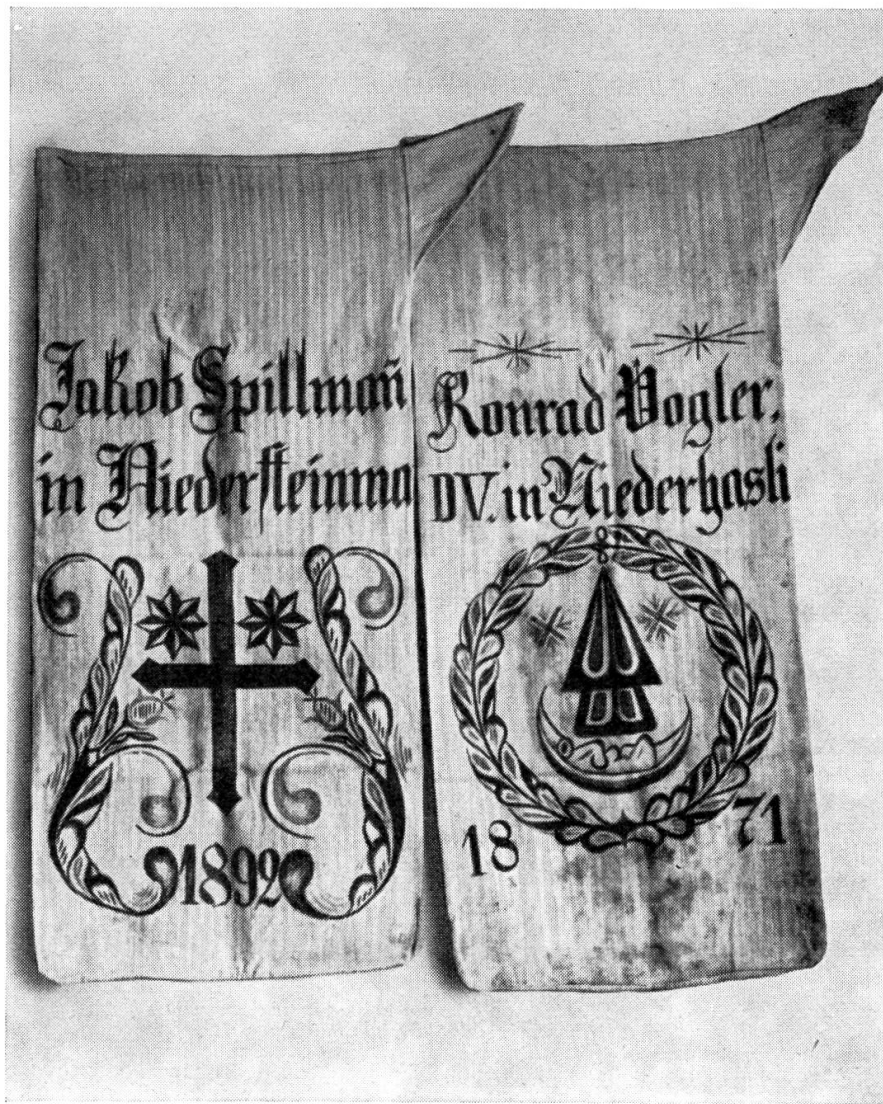 Jakob Spillmañ
in Niedersteinma
1892
Konrad Vogler,
DV. in Niederhasli
18 71